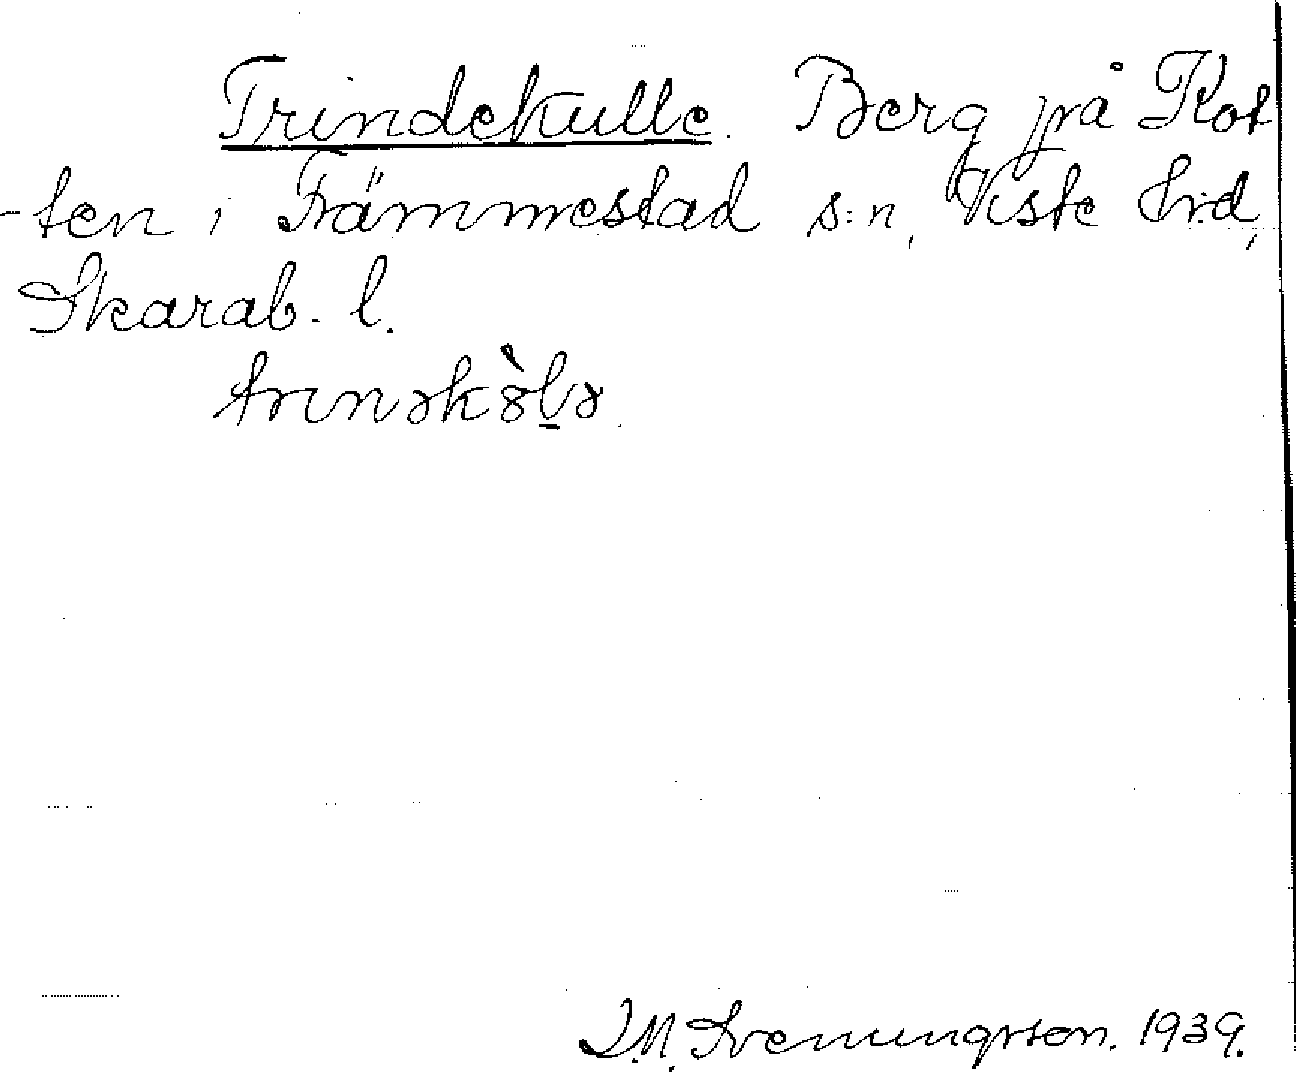 Trindekulle. Berg på Kot
-ten i Främmestad s:n, Viste hrd,
Skarab. l.
J.M. Svenungsson. 1939.